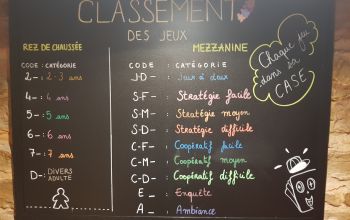 CLASSEMENT
DES JEUX
REZ DE CHAUSSÉE
CODE : CATÉGORIE
2-: 2-3 ans
4-: 4 ans
5-: 5 ans
6-: 6 ans
7-: 7 ans
D-: DIVERS
ADULTE
MEZZANINE
CODE : CATÉGORIE
JD- Jeux à deux
S-F- Stratégie facile
S-M- Stratégie moyen
S-D- Stratégie difficile
C-F- Coopératif facile
C-M- Coopératif moyen
C-D- Coopératif difficile
E_ Enquête
A_ Ambiance
Chaque jeu
dans sa
CASE